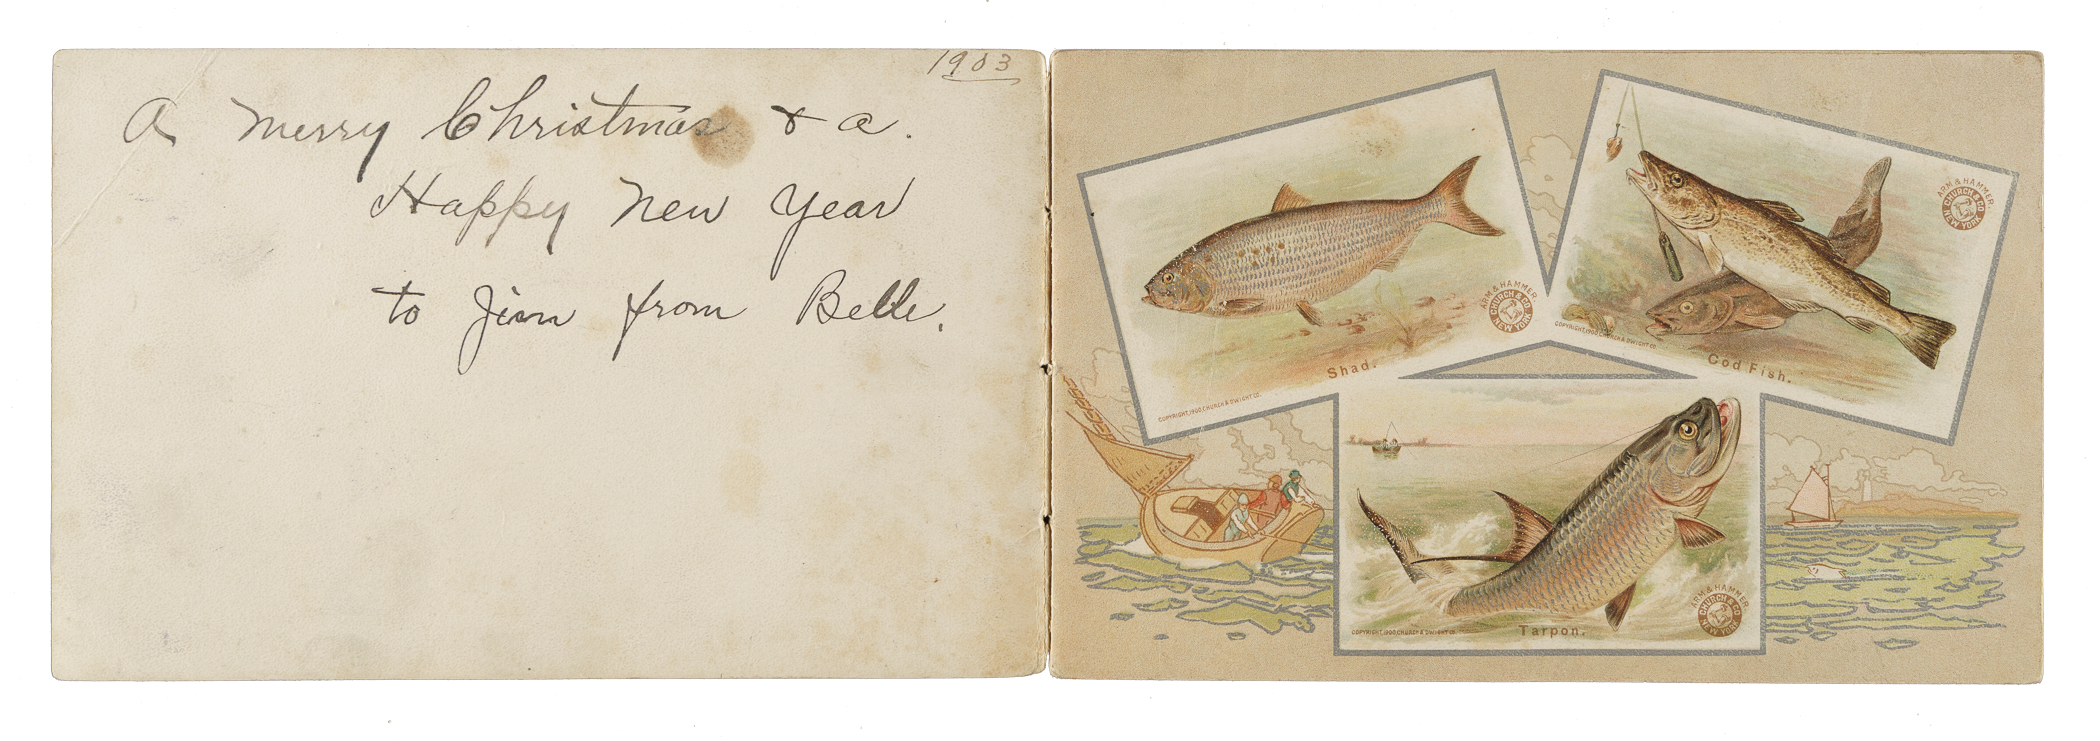 1903
A Merry Christmas & a.
Happy New Year
to Jim from Belle.
ARM & HAMMER
CHURCH & CO
NEW YORK
Shad.
COPYRIGHT, 1900, CHURCH & DWIGHT CO.
ARM & HAMMER.
CHURCH & CO
NEW YORK
COPYRIGHT, 1900, CHURCH & DWIGHT CO.
Cod Fish.
ARM & HAMMER
CHURCH & CO
NEW YORK
COPYRIGHT, 1900, CHURCH & DWIGHT CO.
Tarpon.